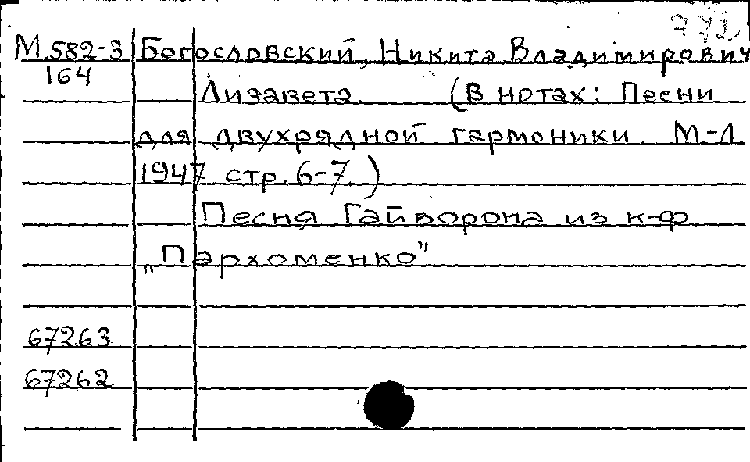 М.582-3 Богословский, Никита Владимирович
164 Лизавета (В нотах: Песни
для двухрядной гармоники. М-Л.
1947 стр. 6-7.)
Песня Гайворона из к-ф
„Пархоменко"
67263
67262